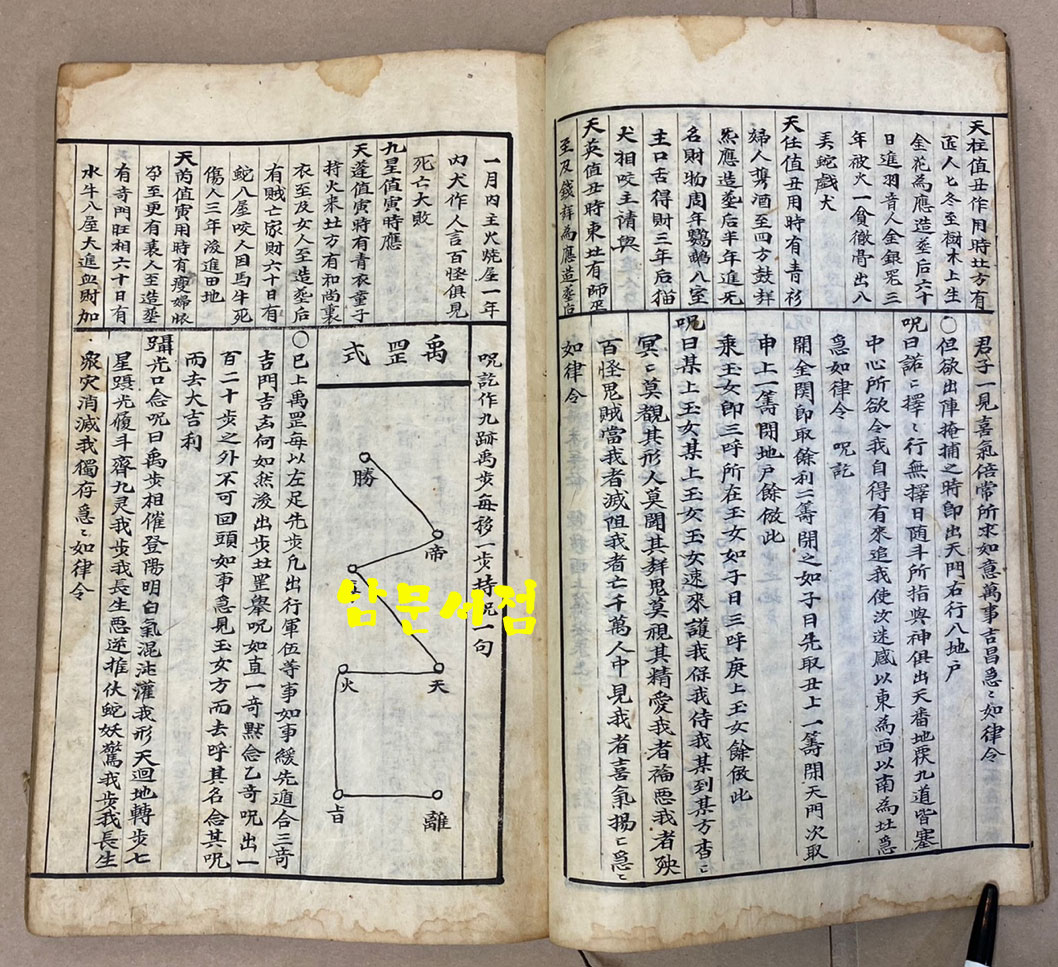 天柱值丑作用時北方有
匠人匕冬至樹木上生
金花為應造葬后六十
日進羽音人金銀器三
年被火一貧徹骨出八
美蛇戲犬
天任值丑用時有青衫
婦人携酒至四方鼓鮮
為應造葬后半年進死
名財物周年鸚鵡入室
主口舌得財三年后猫
犬相咬主請與
天英值丑時東北有師巫
至及錢
為應造葬后
君子一見喜氣倍常所求如意萬事吉昌急〻如律令
〇但欲出陣掩捕之時卽出天門右行入地戶
呪曰諾〻擇〻行無擇日随斗所指與神俱出天番地
九道皆塞
中心所欲令我自得有來追我使汝迷惑以東為西以南為北急
急如律令 呪訖
開金関卽取餘利二籌開之如子日先取丑上一籌開天門次取
申上一籌閉地戶餘倣此
乘玉女卽三呼所在玉女如子日三呼庚上玉女餘倣此
呪曰某上玉女某上玉女玉女速來護我保我侍我某到某方杳〻
冥〻莫覩其形人莫聞其鮮鬼莫視其精愛我者福惡我者殃
百怪鬼賊當我者滅阻我者亡千萬人中見我者喜氣揚〻急〻
如律令
一月內主火燒屋一年
內犬作人言百怪俱見
死亡大敗
九星值寅時應
天蓬值寅時有青衣童子
持火來北方有和尚裹
衣至及女人至造葬后
有賊亡家財六十日有
蛇入屋咬人因馬牛死
傷人三年浚進田地
天芮值寅用時有瘦婦
至更有裹人至造葬
有奇門旺相六十日有
水牛入屋大進血財加
呪訖作九跡禹步每移一步持呪一句
禹罡式
勝
帝
天
火
离
암문서점
〇已上禹罡每以左足先步凡出行軍伍等事如事緩先遁合三奇
吉門吉去向如然浚出步北罡舉呪如直一奇默念乙奇呪出一
百二十步之外不可回頭如事急見玉女方而去呼其名念其呪
而去大吉利
躡光口念呪曰禹步相催登陽明白氣混沌灌我形天迴地轉步七
星躡光履斗齊九灵我步我長生惡逆摧伏蛇妖驚我步我長生
衆灾消滅我獨存急〻如律令